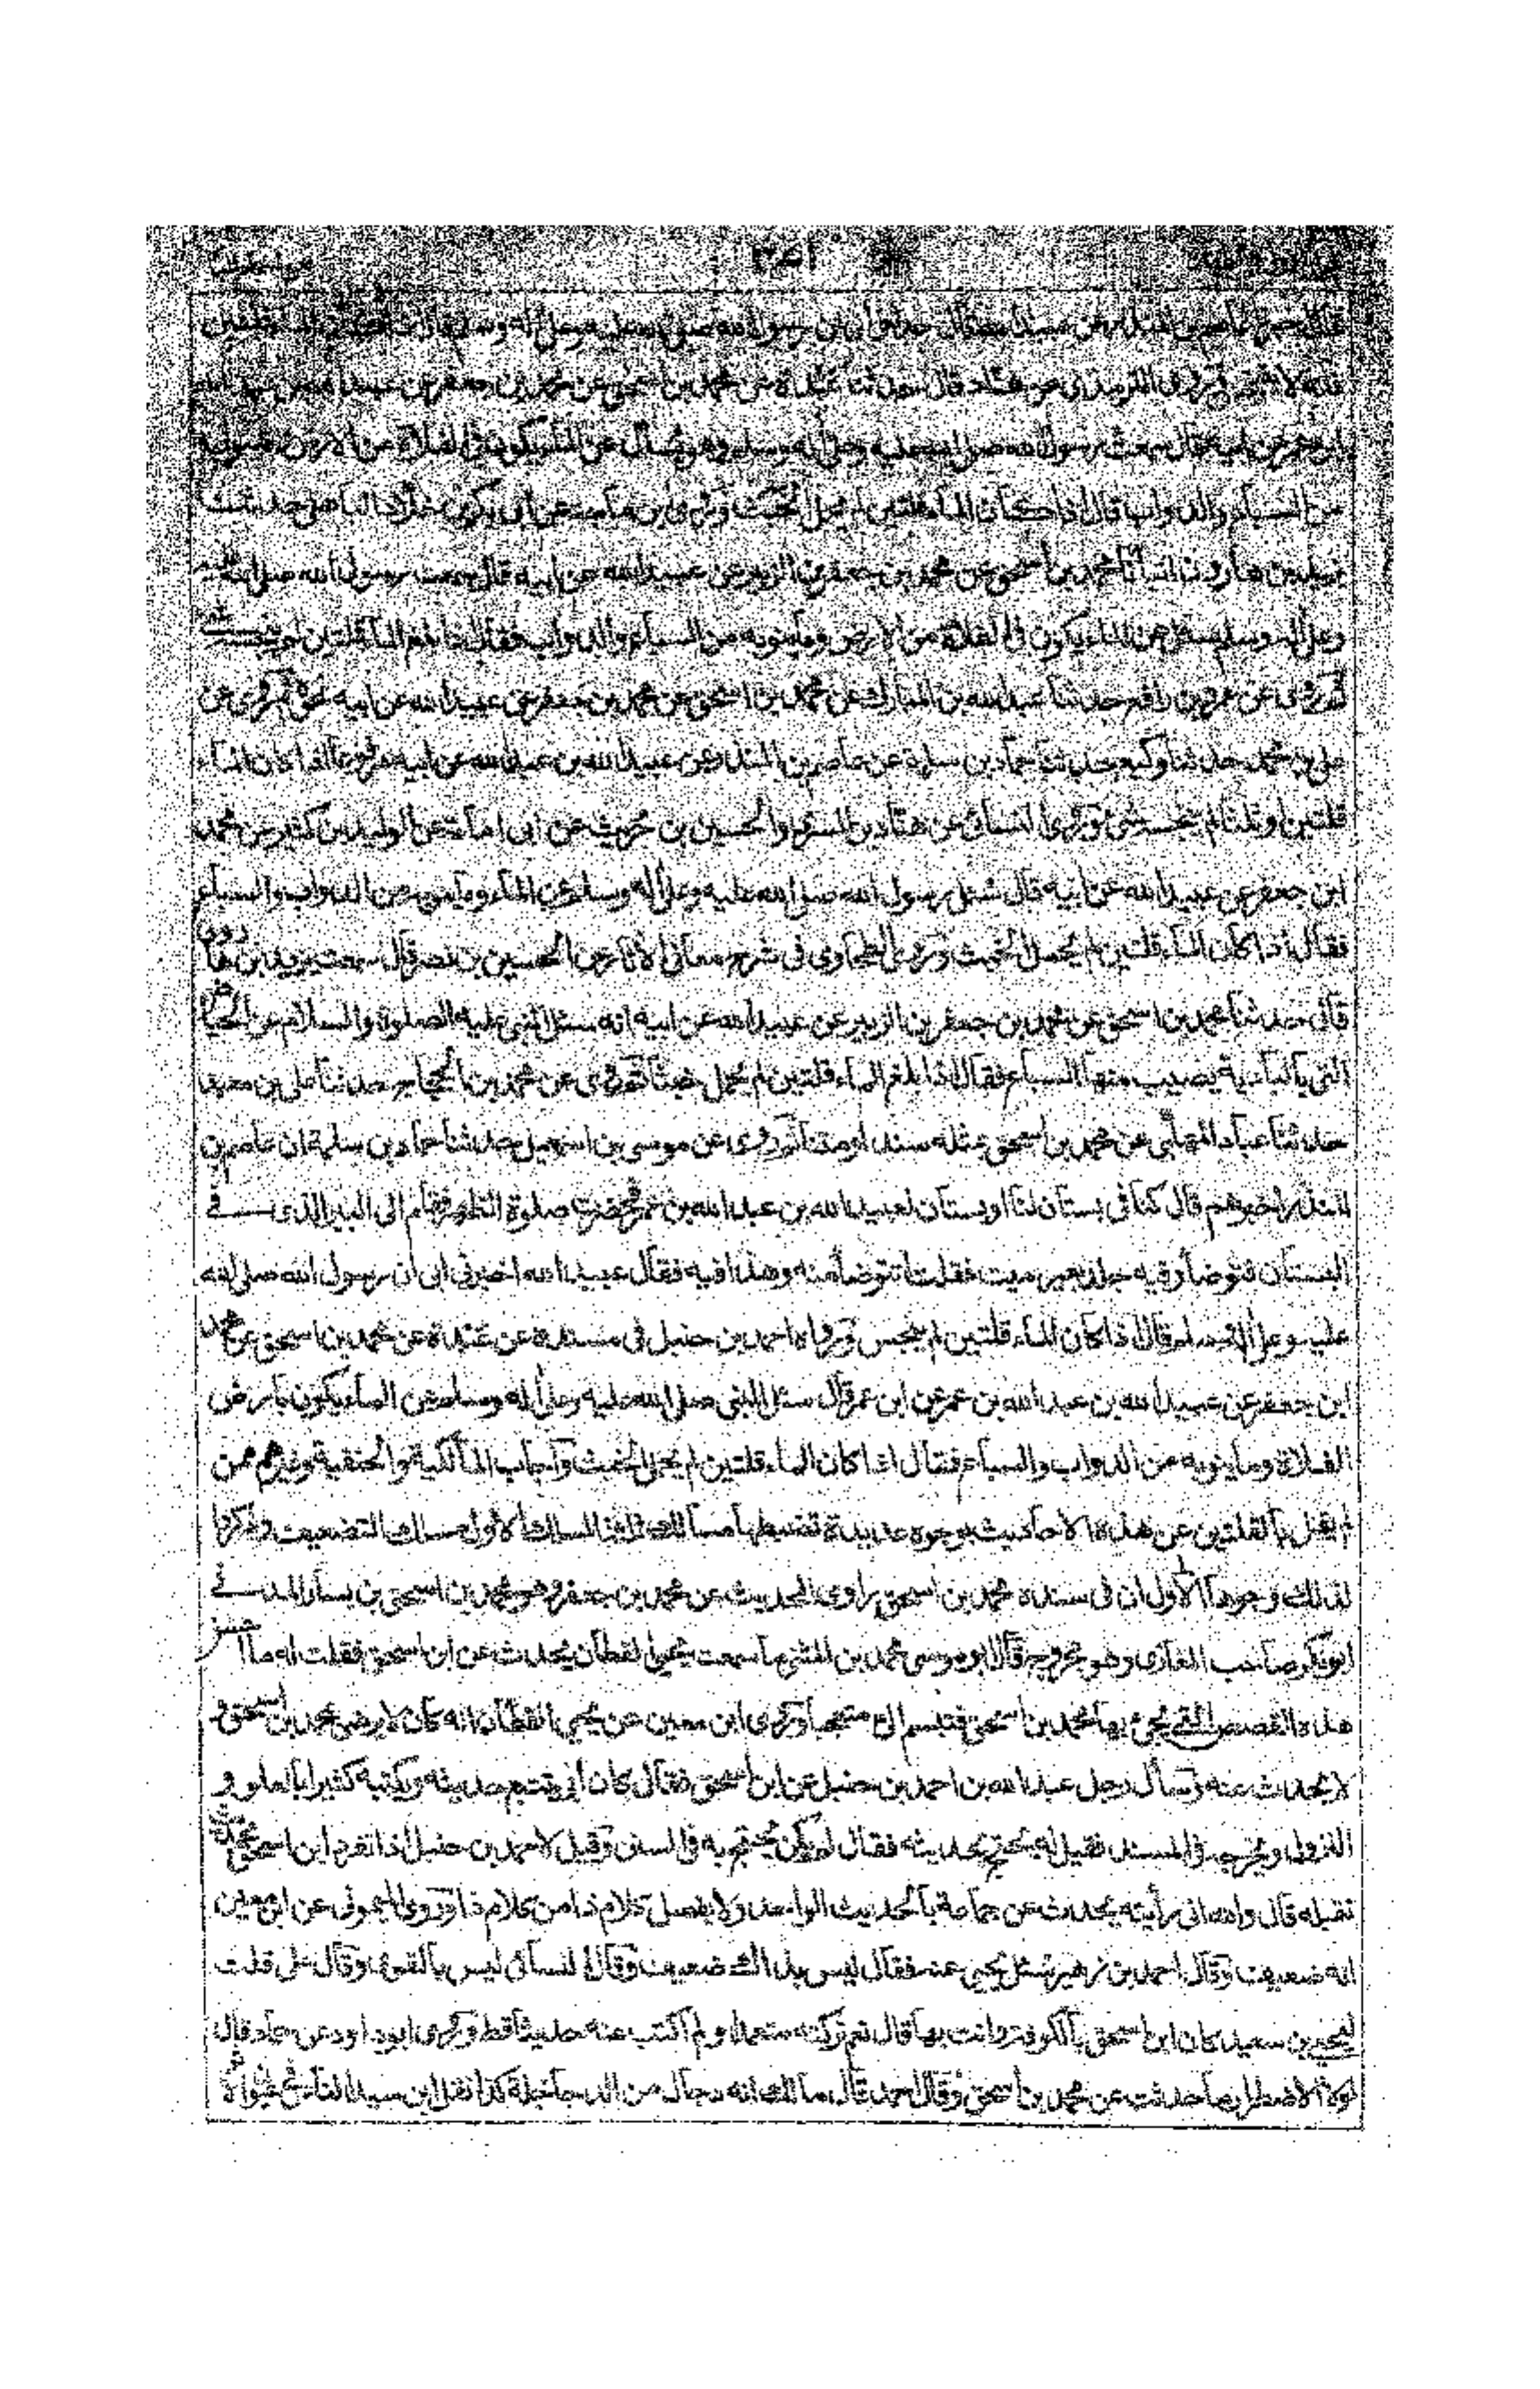 عن عبيد الله قال حدثني أبي ان رسول الله صلى الله عليه وعلى آله وسلم قال
وروى الترمذي عن هناد قال حدثنا عبدة عن محمد بن اسحق عن محمد بن جعفر بن
قال سمعت رسول الله صلى الله عليه وعلى آله وسلم وهو يسأل عن الماء يكون في الفلاة من الارض وما ينوبه
من السباع والدواب قال اذا كان الماء قلتين لم يحمل الخبث وروى ابن ماجة عن ابي بكر بن خلاد الباهلي حدثنا
يزيد بن هارون انبأنا محمد بن اسحق عن محمد بن جعفر بن الزبير عن عبيد الله عن ابيه قال سمعت رسول الله صلى الله عليه
وعلى آله وسلم سئل عن الماء يكون في الفلاة من الارض وما ينوبه من السباع والدواب فقال اذا بلغ الماء قلتين لم ينجسه شئ
ثم روى عن عمرو بن رافع حدثنا عبد الله بن المبارك عن محمد بن اسحق عن محمد بن جعفر عن عبيد الله عن ابيه نحوه ثم روى عن
علي بن محمد حدثنا وكيع حدثنا حماد بن سلمة عن عاصم بن المنذر عن عبيد الله بن عبد الله عن ابيه مرفوعا اذا كان الماء
قلتين او ثلثا لم ينجسه شئ وروى النسائي عن هناد بن السري والحسين بن حريث عن ابي اسامة عن الوليد بن كثير عن محمد
ابن جعفر عن عبيد الله عن ابيه قال سئل رسول الله صلى الله عليه وعلى آله وسلم عن الماء وما ينوبه من الدواب والسباع
فقال اذا كان الماء قلتين لم يحمل الخبث وروى الطحاوي في شرح معاني الآثار عن الحسين بن نصر قال سمعت يزيد بن هارون
قال حدثنا محمد بن اسحق عن محمد بن جعفر بن الزبير عن عبيد الله عن ابيه انه سئل النبي عليه الصلوة والسلام عن الحياض
التي بالبادية يصيب منها السباع فقال اذا بلغ الماء قلتين لم يحمل خبثا ثم روى عن محمد بن الحجاج حدثنا علي بن معبد
حدثنا عباد المهلبي عن محمد بن اسحق مثله سندا ومتنا ثم روى عن موسى بن اسمعيل حدثنا حماد بن سلمة ان عاصم بن
المنذر اخبرهم قال كنا في بستان لنا او بستان لعبيد الله بن عبد الله بن عمر فحضرت صلوة الظهر فقام الى البير الذي في
البستان فتوضأ وفيه جلد بعير ميت فقلت أتتوضأ منه وهذا فيه فقال عبيد الله اخبرني ابي ان رسول الله صلى الله
عليه وعلى آله وسلم قال اذا كان الماء قلتين لم ينجس ورواه احمد بن حنبل في مسنده عن عبدة عن محمد بن اسحق عن محمد
ابن جعفر عن عبيد الله بن عبد الله بن عمر عن ابن عمر قال سئل النبي صلى الله عليه وعلى آله وسلم عن الماء يكون بأرض
الفلاة وما ينوبه من الدواب والسباع فقال اذا كان الماء قلتين لم يحمل الخبث وأجاب المالكية والحنفية وغيرهم ممن
لم يقل بالقلتين عن هذه الاحاديث بوجوه عديدة تضبطها مسالك ثلثة المسلك الاول مسلك التضعيف وذكروا
لذلك وجوها الاول ان في سنده محمد بن اسحق راوي الحديث عن محمد بن جعفر وهو محمد بن اسحق بن يسار المدني
ابو بكر صاحب المغازي وهو مجروح قال ابو موسى محمد بن المثنى ما سمعت يحيى القطان يحدث عن ابن اسحق فقلت له ما
هذه القصص التي يجئ بها محمد بن اسحق فتبسم الي متعجبا وروى ابن معين عن يحيى القطان انه كان لا يرضى محمد بن اسحق و
لا يحدث عنه وسأل رجل عبد الله بن احمد بن حنبل عن ابن اسحق فقال كان ابي يتتبع حديثه ويكتبه كثيرا بالعلو و
النزول ويخرجه في المسند فقيل له يحتج بحديثه فقال لم يكن يحتج به في السنن وقيل لاحمد بن حنبل اذا تفرد ابن اسحق بحديث
تقبله قال والله اني رأيته يحدث عن جماعة بالحديث الواحد ولا يفصل كلام ذا من كلام ذا وروى الميموني عن ابن معين
انه ضعيف وقال احمد بن زهير سئل يحيى عنه فقال ليس بذاك ضعيف وقال النسائي ليس بالقوي وقال علي قلت
ليحيى بن سعيد كان ابن اسحق بالكوفة وانت بها قال نعم تركته متعمدا ولم اكتب عنه حديثا قط وروى ابو داود عن حماد قال
لولا الاضطرار ما حدثت عن محمد بن اسحق وقال احمد قال مالك انه دجال من الدجاجلة كذا نقل ابن سيد الناس